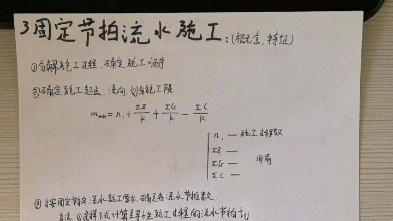 3 固定节拍流水施工：(概念, 特征)
① 分解施工过程, 确定施工顺序
② 确定施工起点, 流向, 划分施工段
m_min = n₁ + ΣB/K + ΣG/K - ΣC/K
n₁ — 施工过程数
ΣB —
ΣG — 间歇
ΣC —
③ 按固定节拍流水施工要求, 确定流水节拍数
计算 施工过程的流水节拍